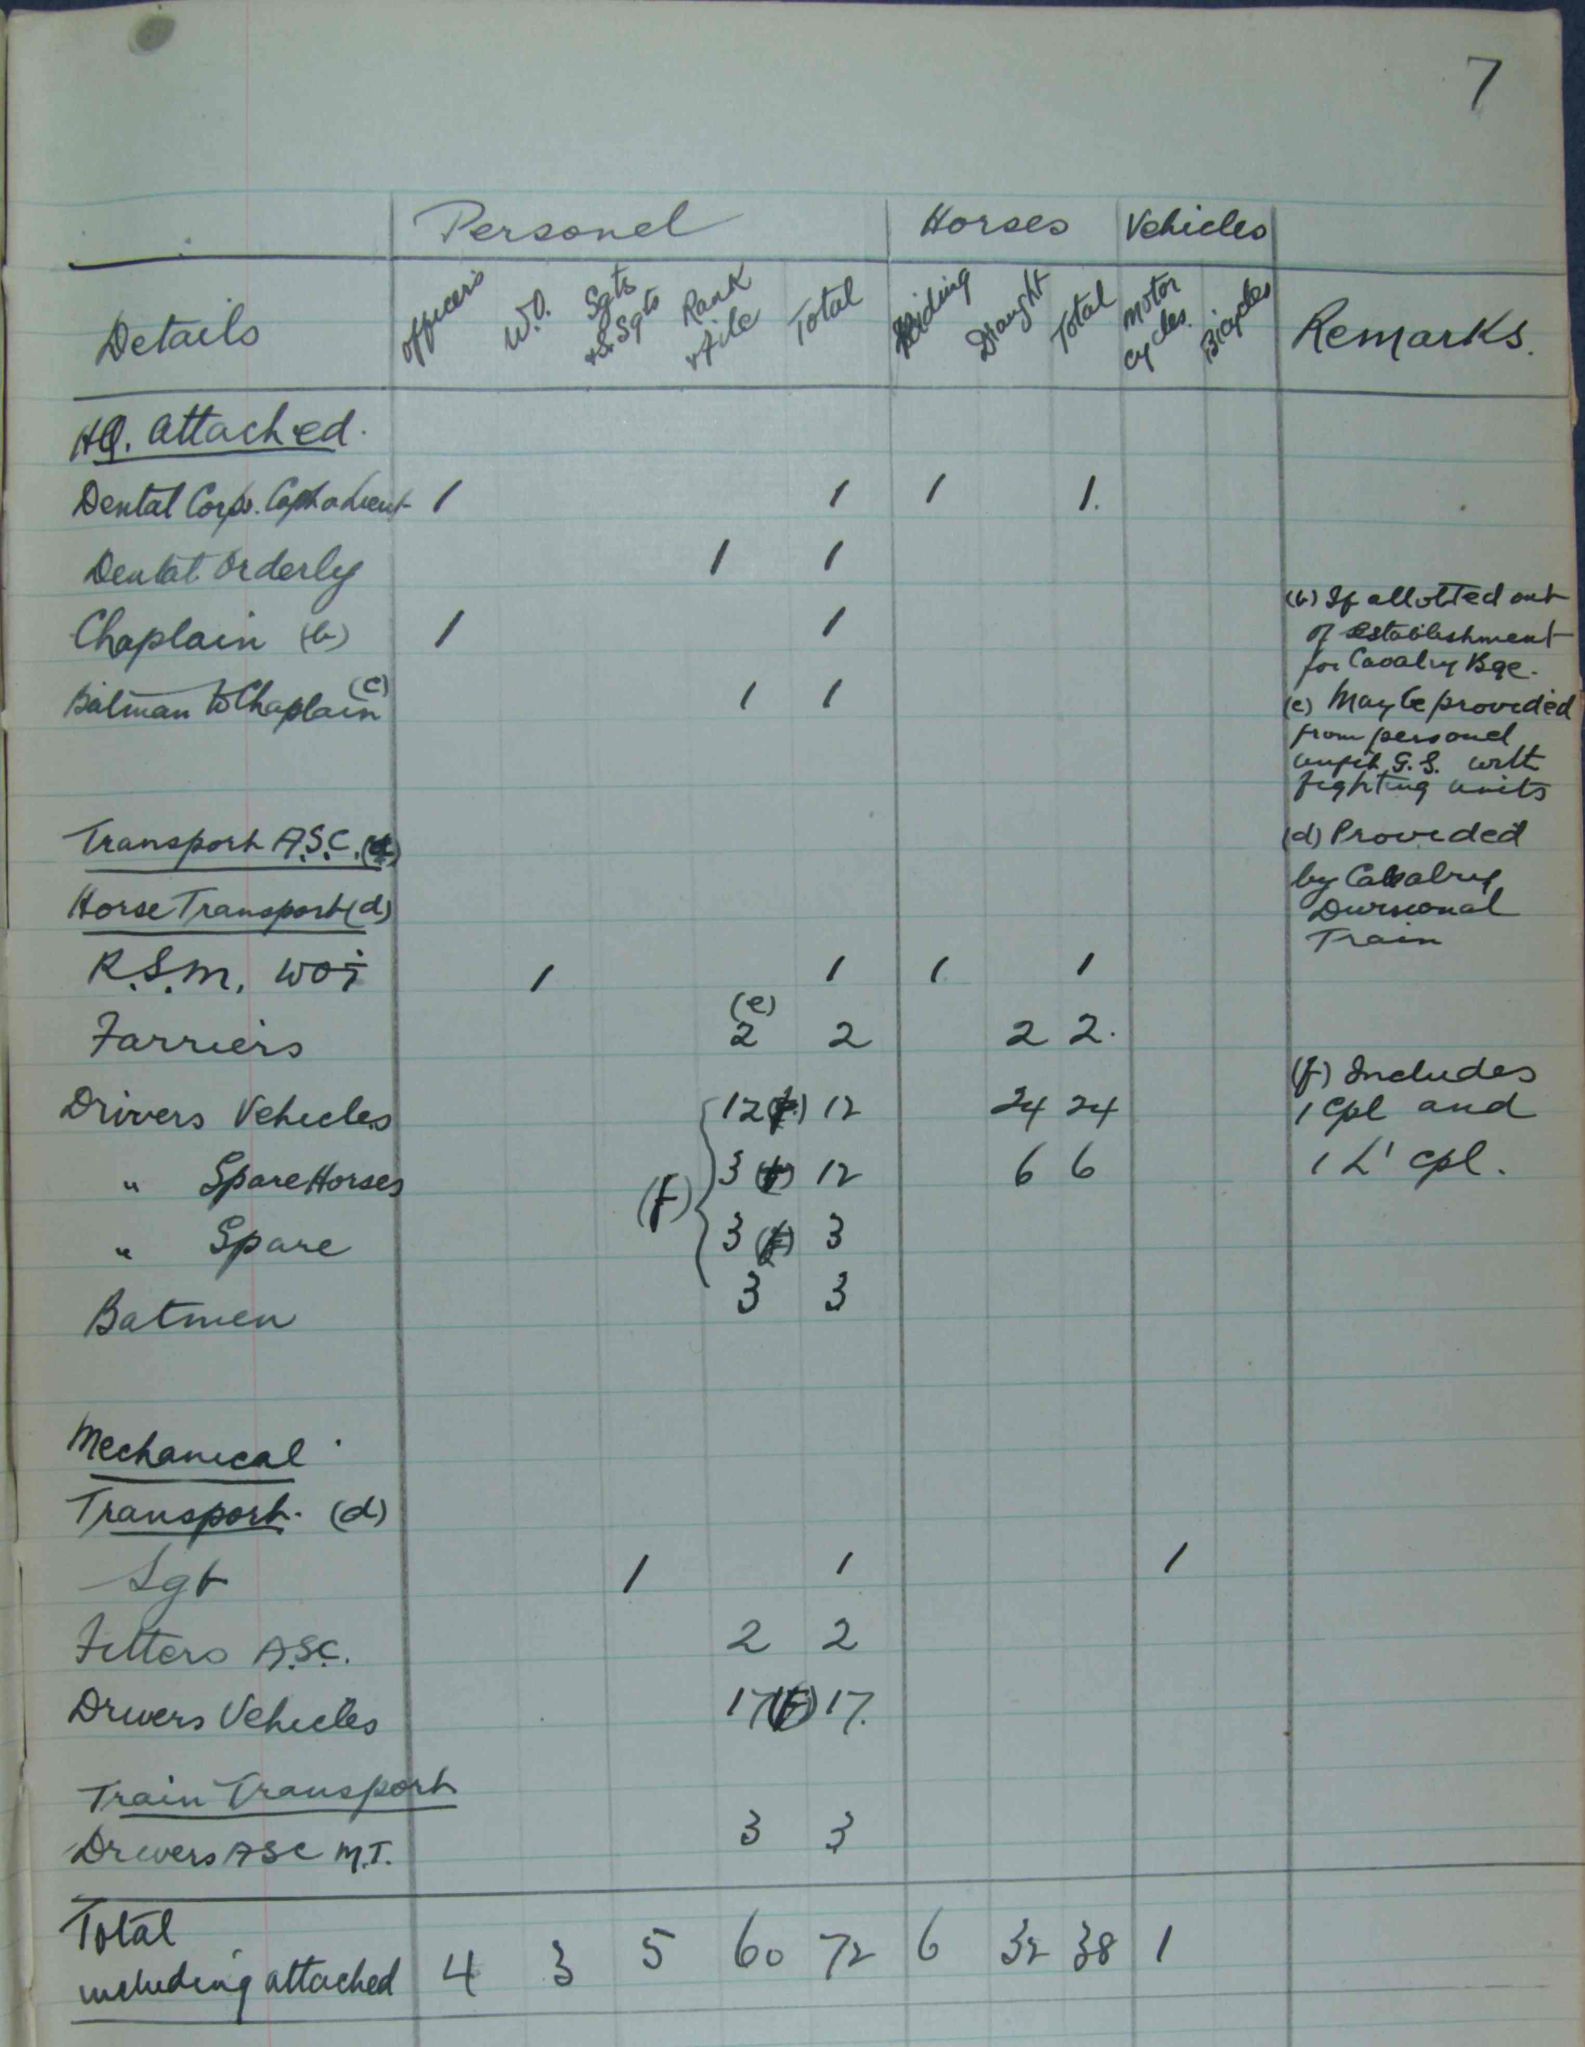 7
Personel Horses Vehicles
Details Officers W.O. Sgts & S. Sgts Rank & File Total Riding Draught Total Motor Cycles. Bicycles Remarks.
HQ. Attached.
Dental Corps. Capt or Lieut 1 1 1 1.
Dental Orderly 1 1
Chaplain (b) 1 1
(b) If allotted out
of establishment
for Cavalry Bge.
Batman to Chaplain (c) 1 1
(c) May be provided
from personel
unfit G.S. with
fighting units
Transport A.S.C. (d)
(d) Provided
by Cavalry
Divisional
Train
Horse Transport (d)
R.S.M. WOI 1 1 1 1
Farriers (e) 2 2 2 2.
Drivers Vehicles 12 12 24 24
(f) Includes
1 Cpl and
1 L' Cpl.
" Spare Horses 3 12 6 6
(f)
" Spare 3 3
Batmen 3 3
Mechanical
Transport. (d)
Sgt 1 1 1
Fitters A.S.C. 2 2
Drivers Vehicles 17 17.
Train Transport
Drivers ASC M.T. 3 3
Total
including attached 4 3 5 60 72 6 32 38 1